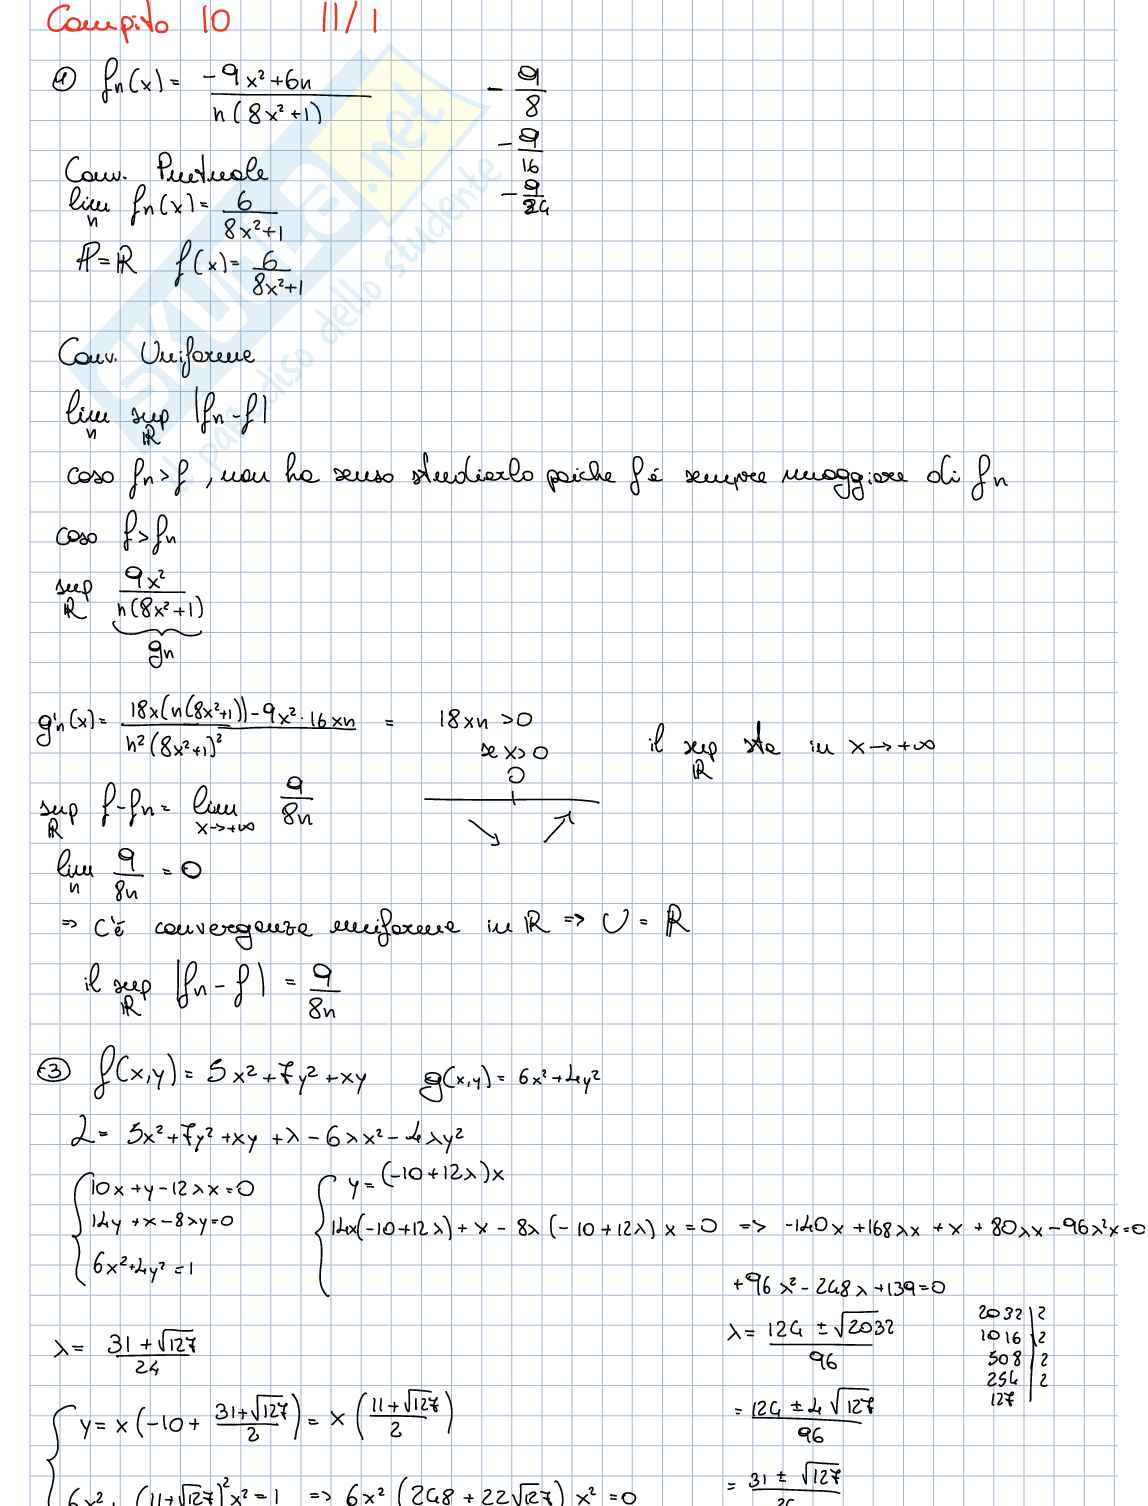 Compito 10 11/1
① fn(x) = (-9x²+6n)/(n(8x²+1))
-9/8
-9/16
-9/24
Conv. Puntuale
lim n fn(x) = 6/(8x²+1)
P=ℝ f(x) = 6/(8x²+1)
Conv. Uniforme
lim n sup ℝ |fn - f|
caso fn>f, non ha senso studiarlo poiche f è sempre maggiore di fn
caso f>fn
sup ℝ 9x²/(n(8x²+1))
gn
g'n(x) = (18x(n(8x²+1)) - 9x²·16xn)/(n²(8x²+1)²) = 18xn >0
se x>0
0
il sup ℝ sta in x→+∞
sup ℝ f-fn = lim x→+∞ 9/8n
lim n 9/8n = 0
⇒ C'è convergenza uniforme in ℝ ⇒ U = ℝ
il sup ℝ |fn - f| = 9/8n
③ f(x,y) = 5x²+7y²+xy g(x,y) = 6x²+4y²
L = 5x²+7y²+xy+λ-6λx²-4λy²
10x+y-12λx=0
14y+x-8λy=0
6x²+4y²=1
y=(-10+12λ)x
14x(-10+12λ)+x-8λ(-10+12λ)x=0 ⇒ -140x+168λx+x+80λx-96λ²x=0
+96λ²-248λ+139=0
λ = (124±√2032)/96
= (124±4√127)/96
= (31±√127)/24
2032|2
1016|2
508|2
254|2
127
λ = (31+√127)/24
y = x(-10+(31+√127)/2) = x((11+√127)/2)
6x²+(11+√127)²x²=1 ⇒ 6x²(248+22√127)x²=0
skuola.net
il paradiso dello studente